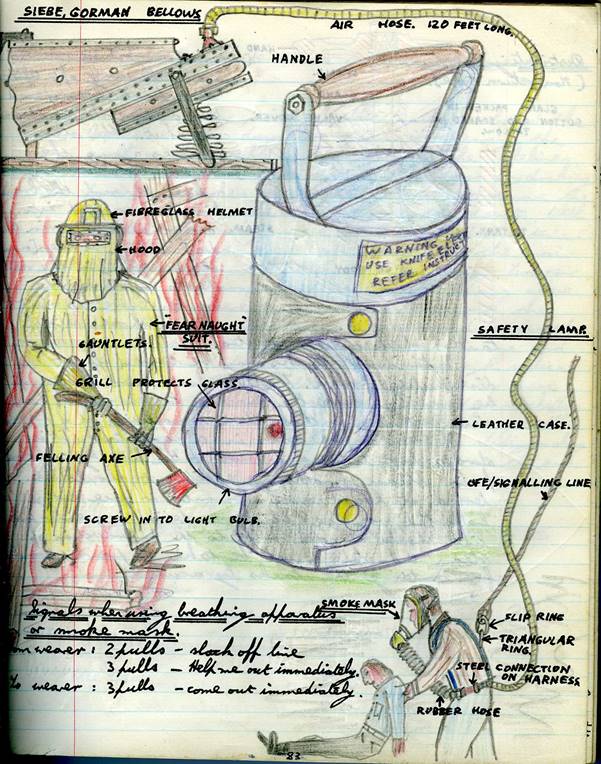 SIEBE, GORMAN BELLOWS
AIR HOSE. 120 FEET LONG.
HANDLE
FIBREGLASS HELMET
HOOD
WARNING
USE KNIFE
REFER INSTRUCT
"FEARNAUGHT"
SUIT.
SAFETY LAMP.
GAUNTLETS.
GRILL PROTECTS GLASS
LEATHER CASE.
FELLING AXE
LIFE/SIGNALLING LINE
SCREW IN TO LIGHT BULB.
Signals when using breathing apparatus
or smoke mask.
wearer: 2 pulls - slack off line
3 pulls - Help me out immediately.
To wearer: 3 pulls - come out immediately.
SMOKE MASK
SLIP RING
TRIANGULAR
RING.
STEEL CONNECTION
ON HARNESS
RUBBER HOSE
83